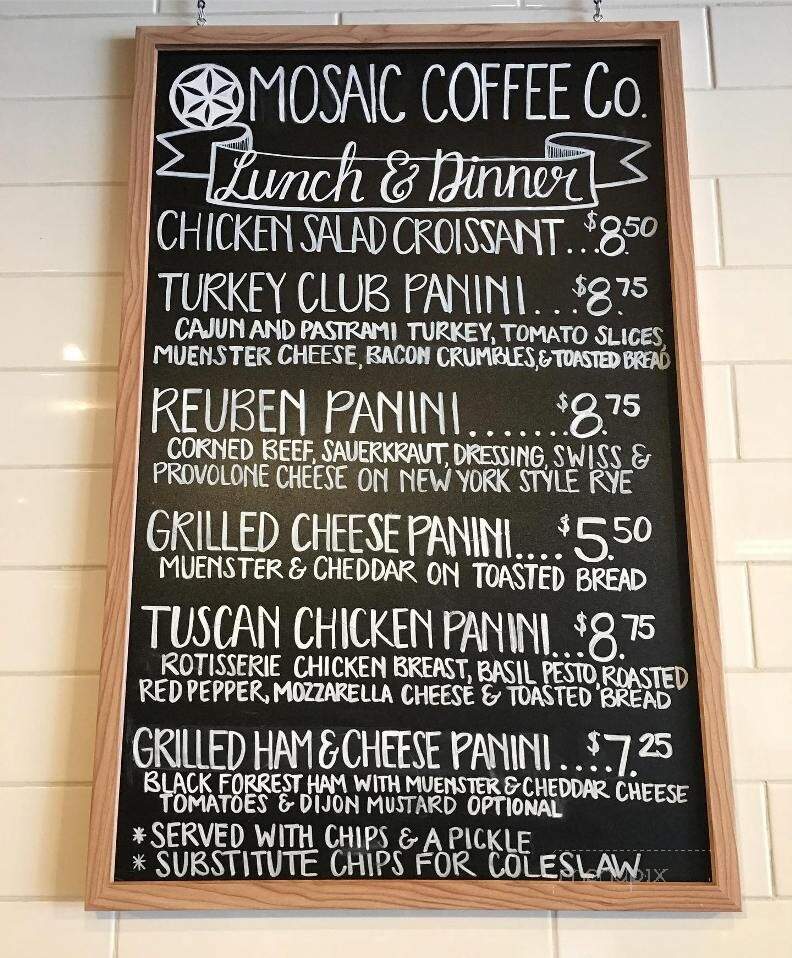 MOSAIC COFFEE Co.
Lunch & Dinner
CHICKEN SALAD CROISSANT...$8.50
TURKEY CLUB PANINI...$8.75
CAJUN AND PASTRAMI TURKEY, TOMATO SLICES,
MUENSTER CHEESE, BACON CRUMBLES, & TOASTED BREAD
REUBEN PANINI.......$8.75
CORNED BEEF, SAUERKRAUT, DRESSING, SWISS &
PROVOLONE CHEESE ON NEW YORK STYLE RYE
GRILLED CHEESE PANINI....$5.50
MUENSTER & CHEDDAR ON TOASTED BREAD
TUSCAN CHICKEN PANINI...$8.75
ROTISSERIE CHICKEN BREAST, BASIL PESTO, ROASTED
RED PEPPER, MOZZARELLA CHEESE & TOASTED BREAD
GRILLED HAM & CHEESE PANINI....$7.25
BLACK FORREST HAM WITH MUENSTER & CHEDDAR CHEESE
TOMATOES & DIJON MUSTARD OPTIONAL
* SERVED WITH CHIPS & A PICKLE
* SUBSTITUTE CHIPS FOR COLESLAW
menupix